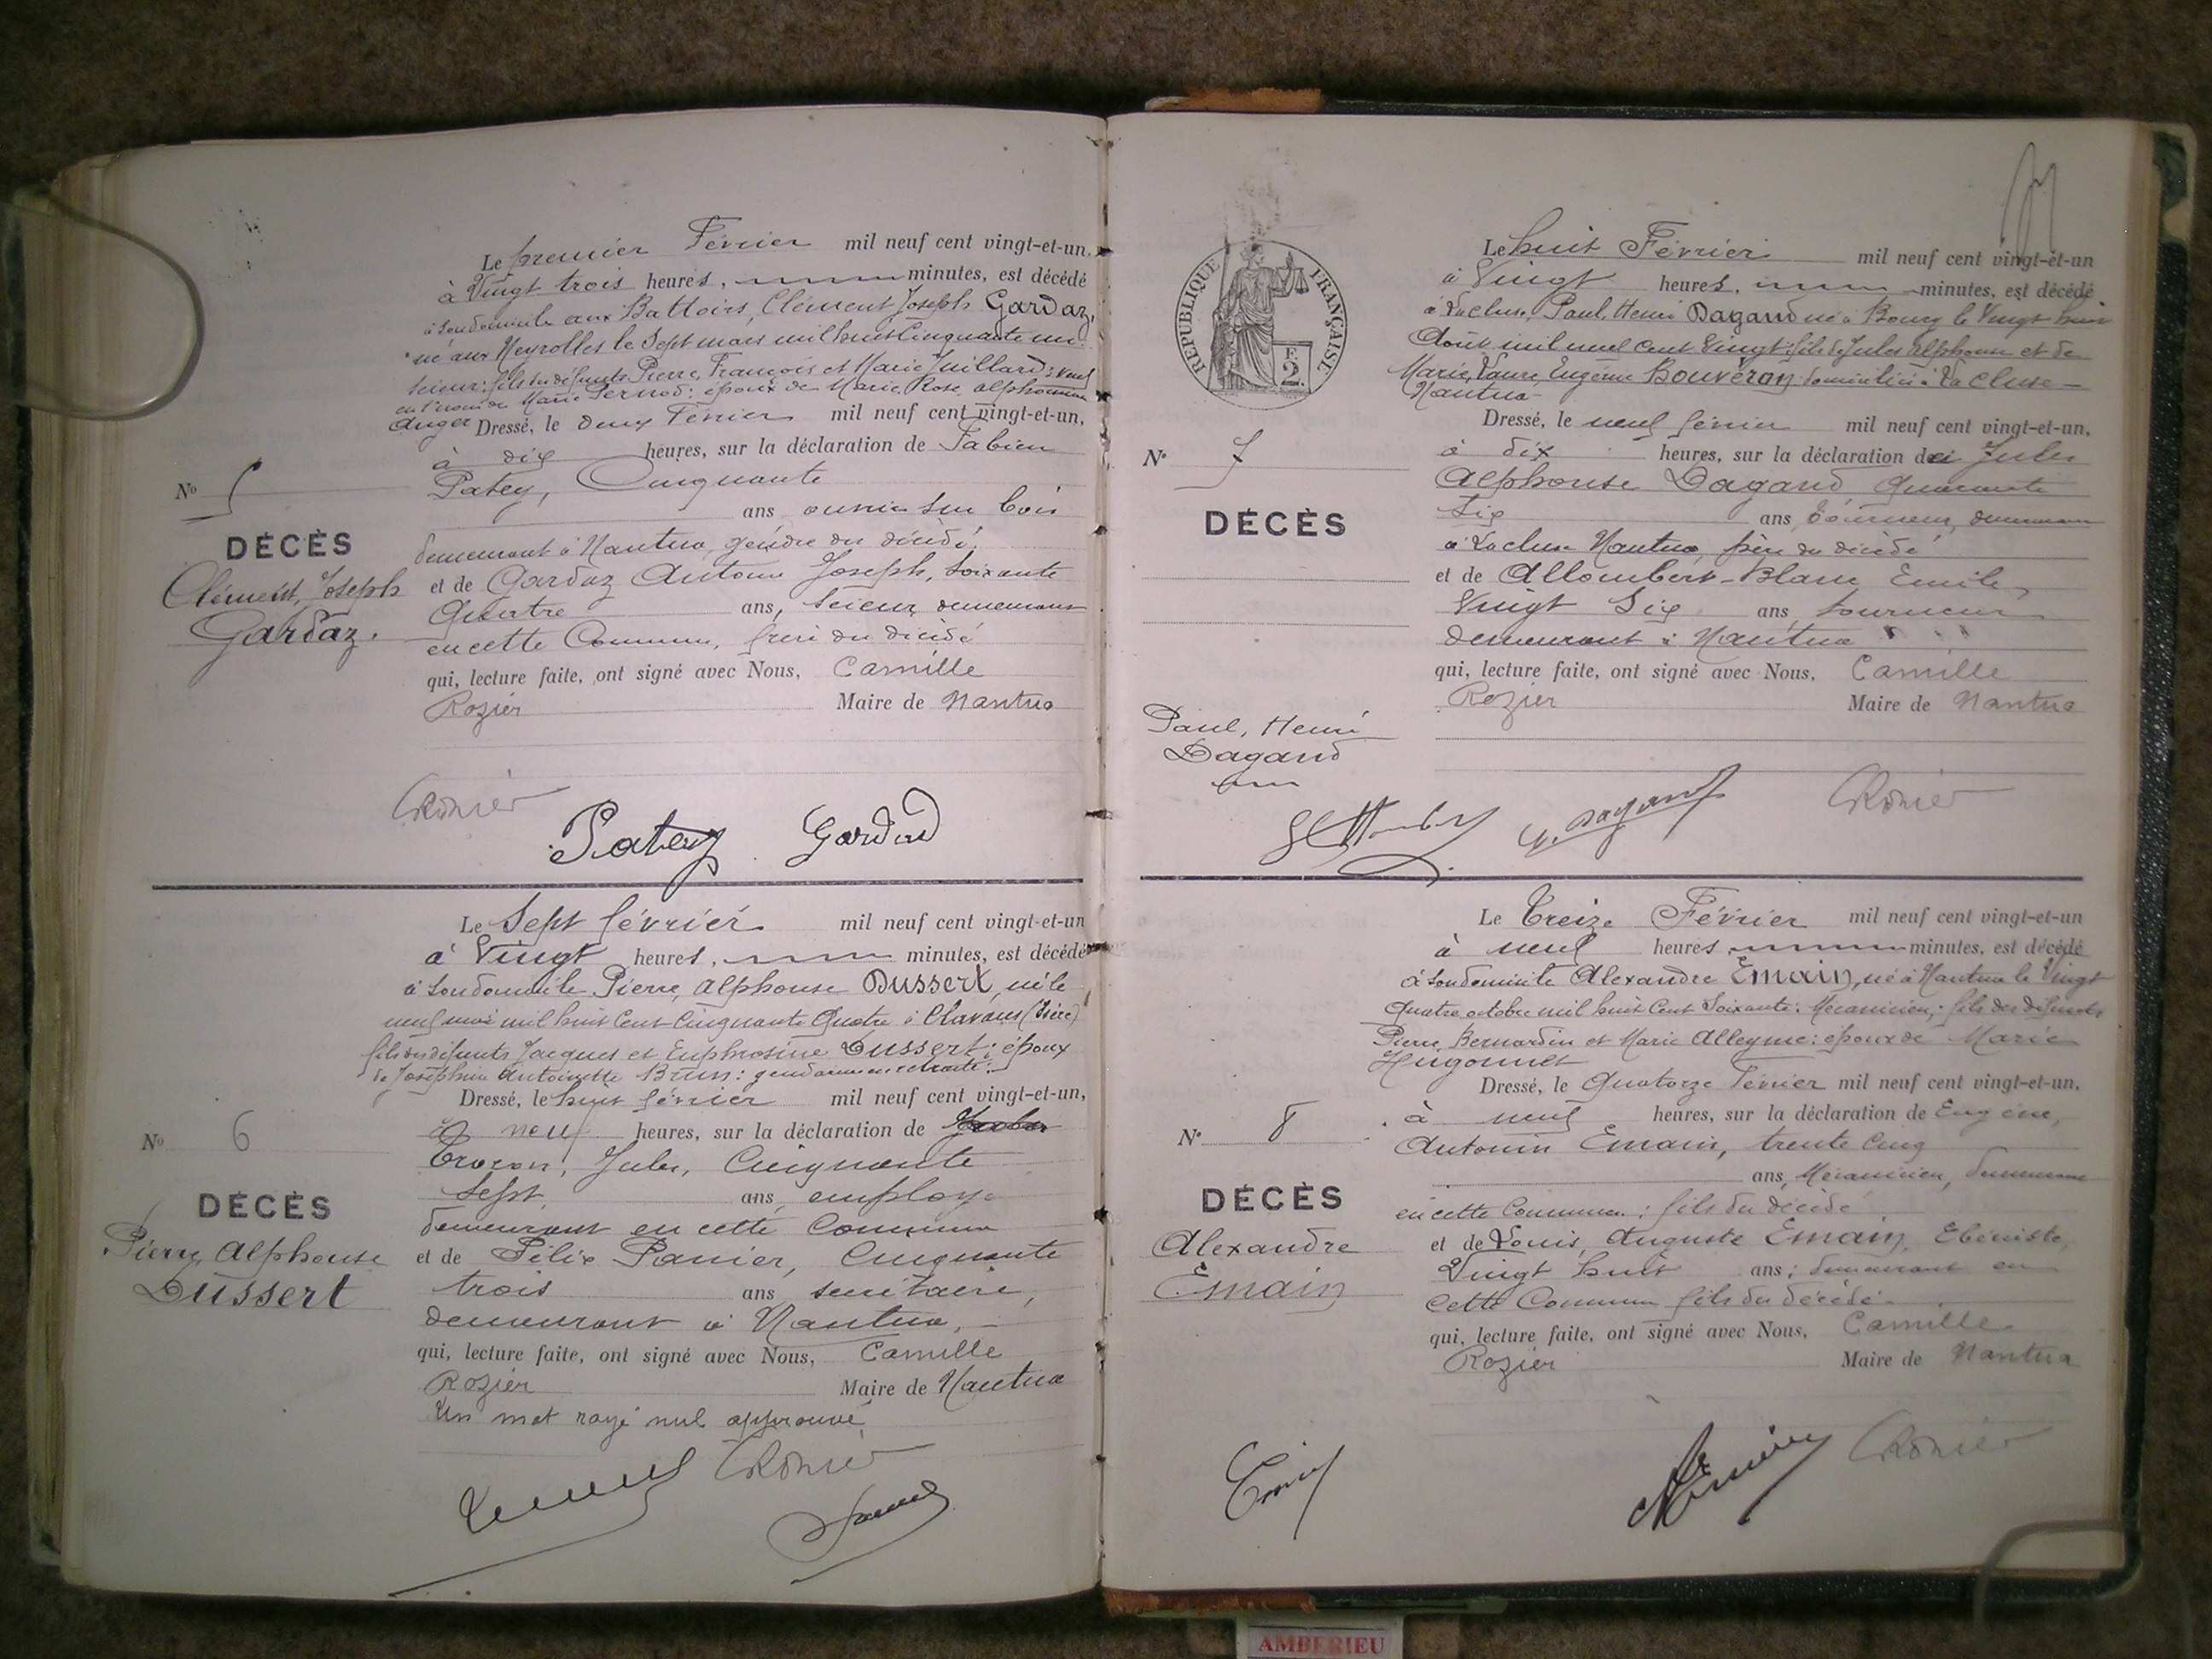 Le premier Février mil neuf cent vingt-et-un,
à Vingt trois heures, minutes, est décédé
à son domicile aux Battoirs, Clément Joseph Gardaz,
né aux Neyrolles le Sept mars mil huit Cinquante un
Scieur: fils des défunts Pierre, François et Marie Juillard: veuf
de Marie Pernod: époux de Marie Rose alphonsine
Auger
Dressé, le deux Février mil neuf cent vingt-et-un,
à dix heures, sur la déclaration de Fabien
Patey, Cinquante
ans ouvrier sur bois
demeurant à Nantua, gendre du décédé
et de Gardaz Antoine Joseph, soixante
Quatre ans, scieur demeurant
en cette Commune, frère du décédé
qui, lecture faite, ont signé avec Nous, Camille
Rozier Maire de Nantua
No 5
DÉCÈS
Clément, Joseph
Gardaz.
CRozier
Patey Gardaz
Le Sept février mil neuf cent vingt-et-un
à Vingt heures, minutes, est décédé
à son domicile Pierre, Alphonse Dussert, né le
neuf mai mil huit Cent Cinquante Quatre à Clavans (Isère)
fils des défunts Jacques et Euphrosine Dussert: époux
de Joséphine Antoinette Brun: gendarme en retraite.
Dressé, le huit février mil neuf cent vingt-et-un,
à neuf heures, sur la déclaration de
Jules, Cinquante
Sept ans, employé
demeurant en cette Commune
et de Félix Panier, Cinquante
trois ans
demeurant à Nantua,
qui, lecture faite, ont signé avec Nous, Camille
Rozier Maire de Nantua
Un mot rayé nul approuvé
No 6
DÉCÈS
Pierre, Alphonse
Dussert
CRozier
RÉPUBLIQUE FRANÇAISE
2F
Le huit Février mil neuf cent vingt-et-un
à Vingt heures, minutes, est décédé
à Lacluse, Paul, Henri Dagand né à Bourg le Vingt huit
Août mil neuf cent Vingt: fils de Jules Alphonse et de
Marie, Laure, Eugénie Bouveron: domicilié à La Cluse
Nantua
Dressé, le neuf février mil neuf cent vingt-et-un,
à dix heures, sur la déclaration de Jules
Alphonse Dagand Quarante
Six ans, tourneur, demeurant
à Lacluse Nantua, père du décédé
et de Allombert-Blanc Emile,
Vingt Six ans tourneur
demeurant à Nantua
qui, lecture faite, ont signé avec Nous, Camille
Rozier Maire de Nantua
No 7
DÉCÈS
Paul, Henri
Dagand
Dagand CRozier
Le Treize Février mil neuf cent vingt-et-un
à neuf heures, minutes, est décédé
à son domicile Alexandre Emain, né à Nantua le Vingt
Quatre octobre mil huit Cent Soixante: Mécanicien: fils des défunts
Pierre, Bernardin et Marie Alleyme: époux de Marie
Hugonnet
Dressé, le Quatorze Février mil neuf cent vingt-et-un,
à neuf heures, sur la déclaration de Eugène,
Antonin Emain, trente Cinq
ans, Mécanicien, demeurant
en cette Commune: fils du décédé
et de Louis, Auguste Emain, Ebéniste,
Vingt huit ans: demeurant en
cette Commune fils du décédé
qui, lecture faite, ont signé avec Nous, Camille
Rozier Maire de Nantua
No 8
DÉCÈS
Alexandre
Emain
Emain CRozier
AMBERIEU